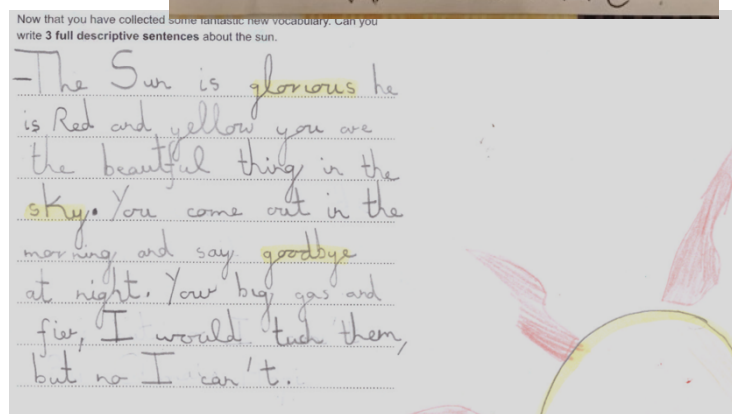 Now that you have collected some fantastic new vocabulary. Can you
write 3 full descriptive sentences about the sun.
The Sun is glorious he
is Red and yellow you are
the beautful thing in the
sky. You come out in the
morning and say goodbye
at night. Your big gas and
fier, I would tuch them,
but no I can't.